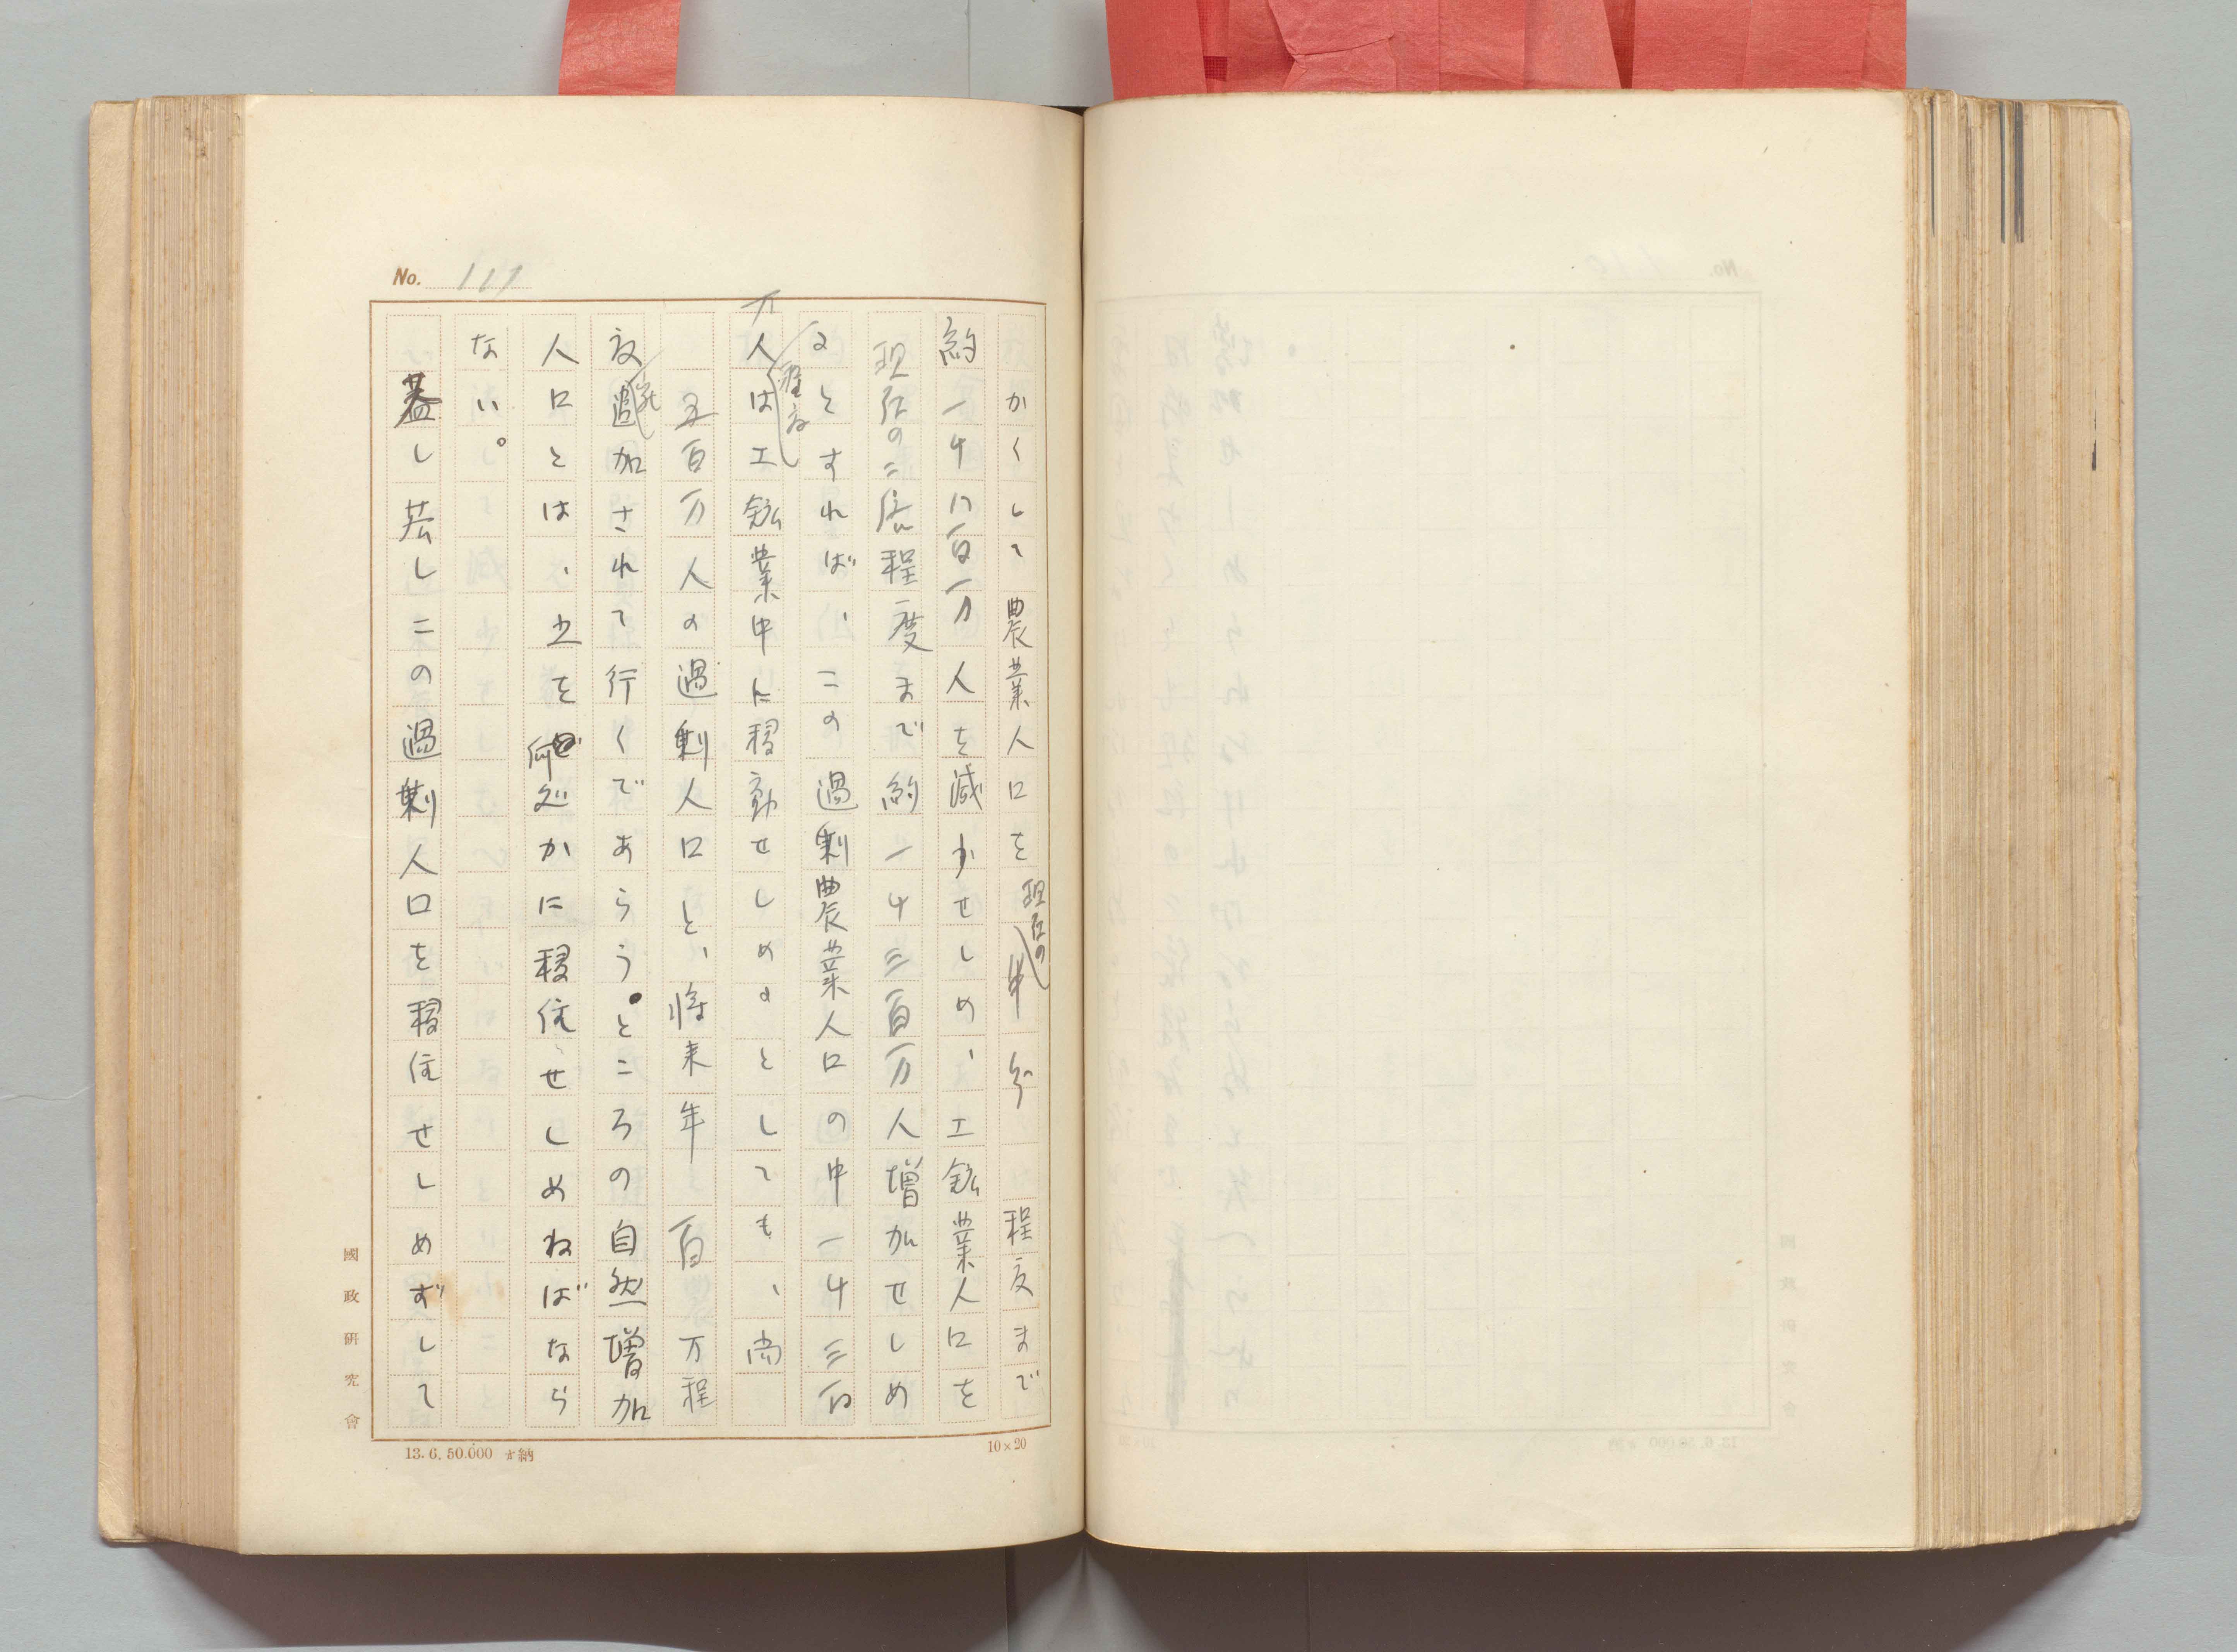 No. 117
かくして農業人口を現在の半分程度まで
約一千八百万人を減少せしめ、工鉱業人口を
現在の二倍程度まで約一千三百万人増加せしめ
るとすれば、この過剰農業人口の中一千三百
万人程度は工鉱業中に移動せしめのとしても、尚
五百万人の過剰人口と、将来年百万程
度過加されて行くであらう。ところの自然増加
人口とは、之を何処かに移住せしめねばなら
ない。
蓋し若しこの過剰人口を移住せしめずして
國政研究會
13.6.50.000 納
10×20